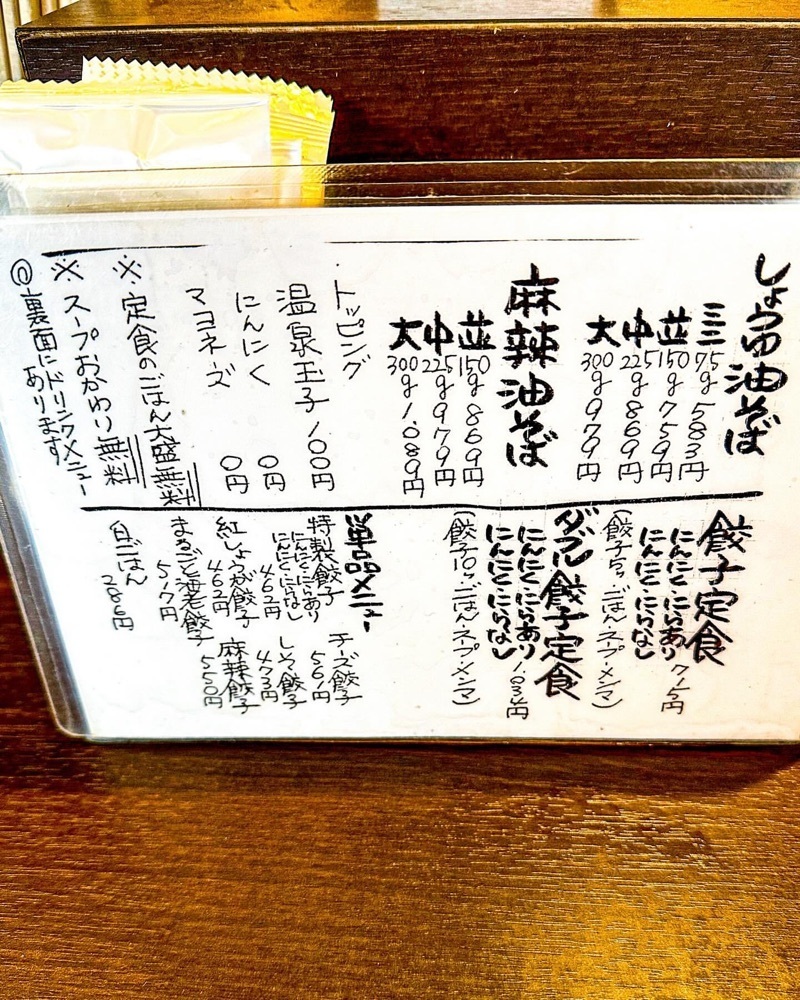 しょうゆ油そば
ミニ 75g 583円
並 150g 759円
中 225g 869円
大 300g 979円
麻辣油そば
並 150g 869円
中 225g 979円
大 300g 1,089円
トッピング
温泉玉子 100円
にんにく 0円
マヨネーズ 0円
※定食のごはん大盛無料
※スープおかわり無料
◎裏面にドリンクメニューあります
餃子定食
にんにく・にらあり
にんにく・にらなし
715円
(餃子5ヶ・ごはん・スープ・メンマ)
ダブル餃子定食
にんにく・にらあり
にんにく・にらなし
1,034円
(餃子10ヶ・ごはん・スープ・メンマ)
単品メニュー
特製餃子
にんにく・にらあり
にんにく・にらなし
462円
チーズ餃子
561円
しそ餃子
473円
紅しょうが餃子
462円
麻辣餃子
550円
まるごと海老餃子
517円
白ごはん
286円